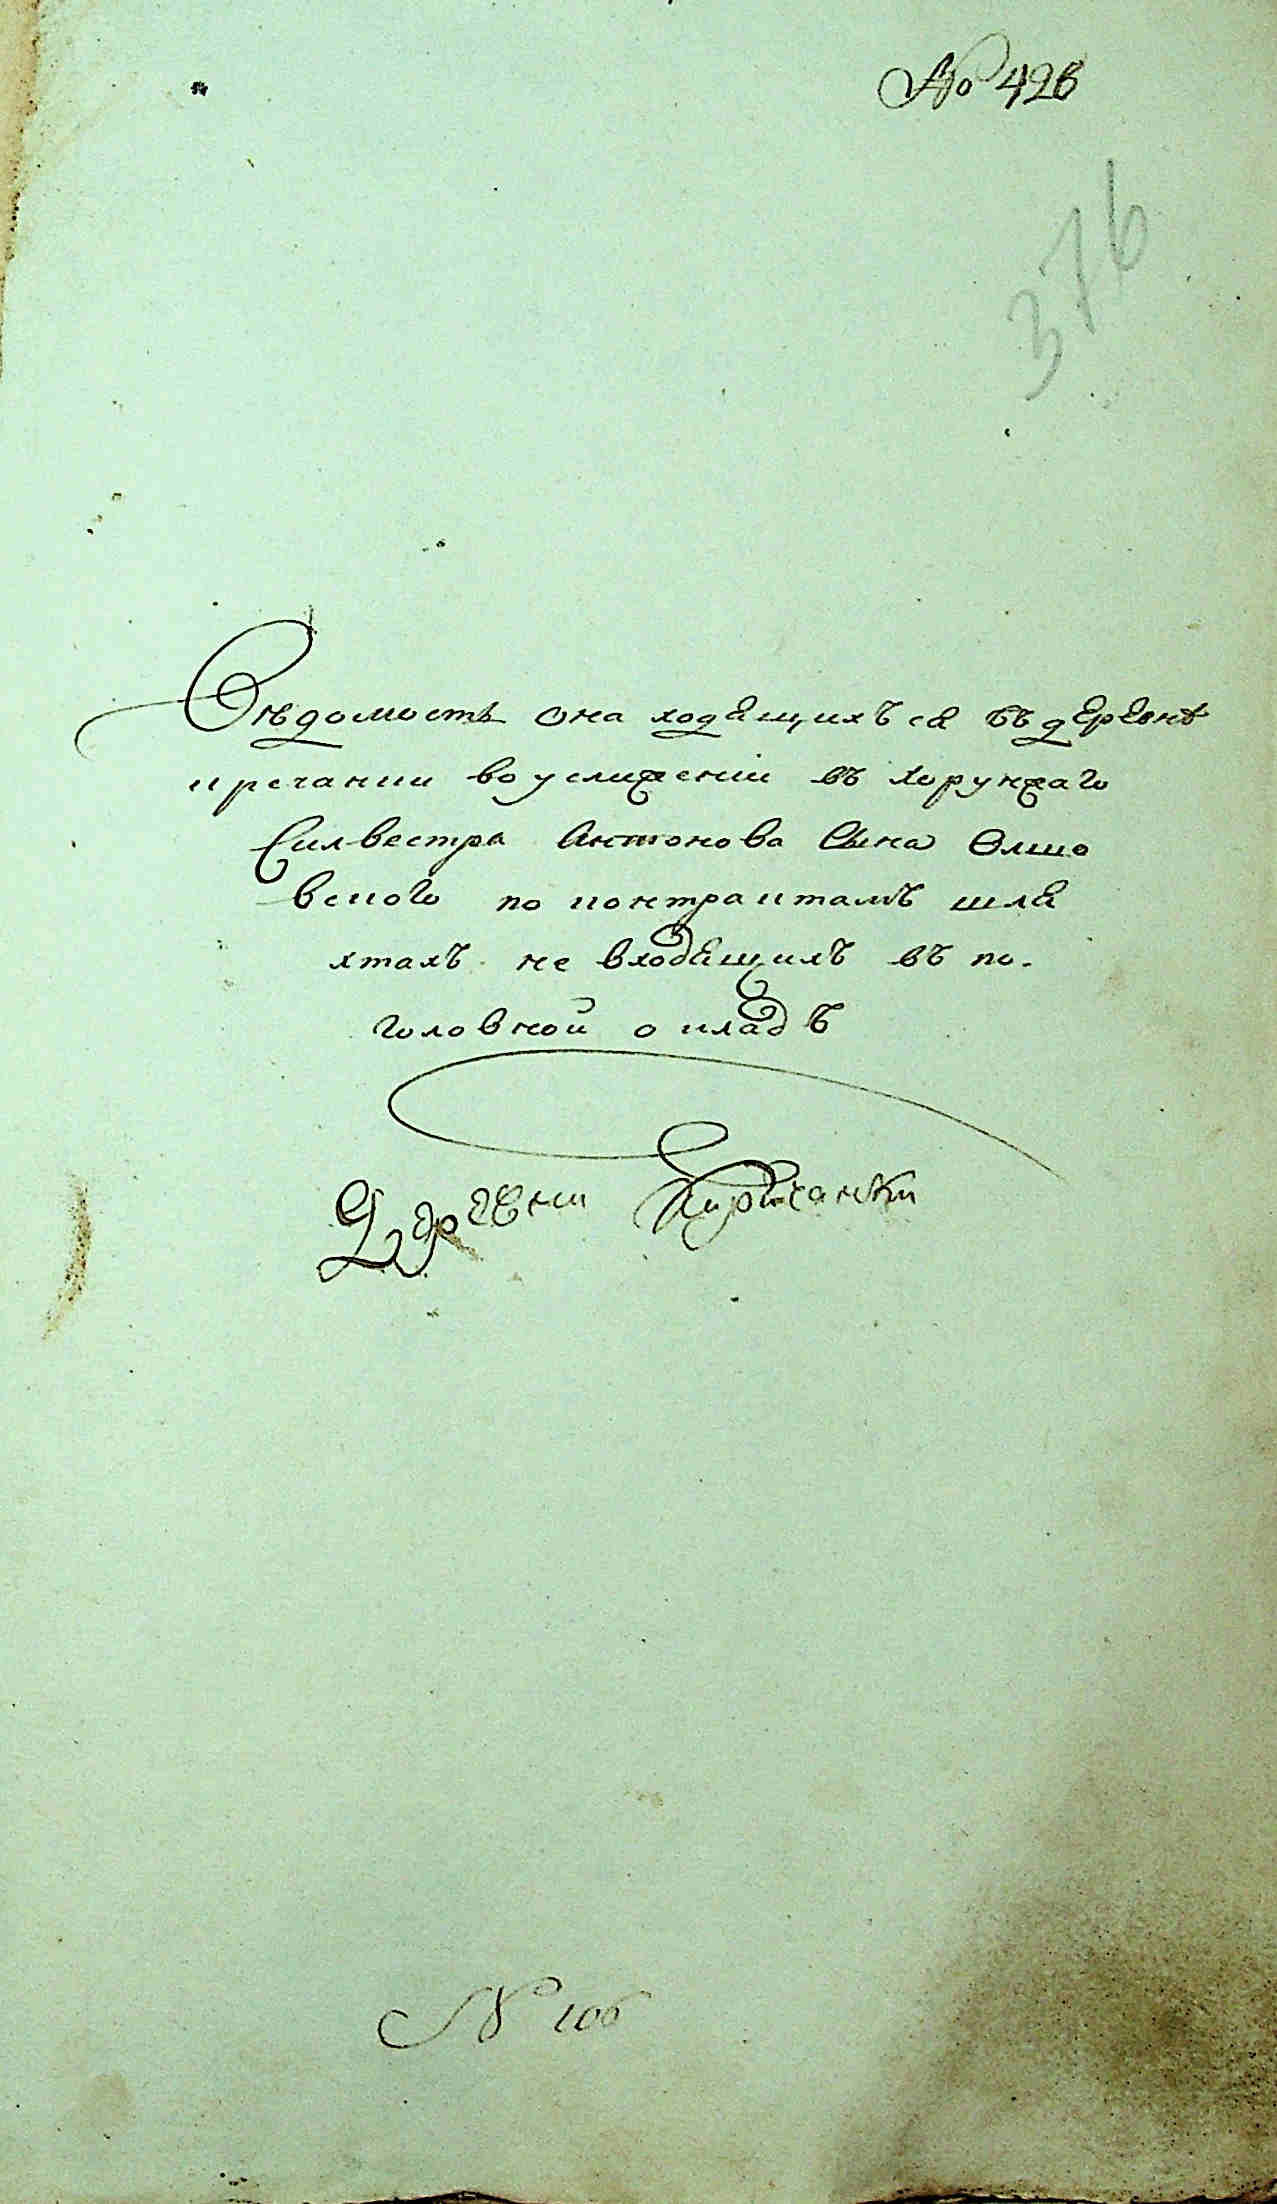 № 426
376
Вѣдомость она ходящихъ ся въ деревнѣ
кречанки во услужении въ хорунжаго
Силвестра Антонова Сына Олшо
вского по контрактамъ шля
хтахъ не входящихъ въ по-
головной окладъ
Деревни Киричанки
№ 106